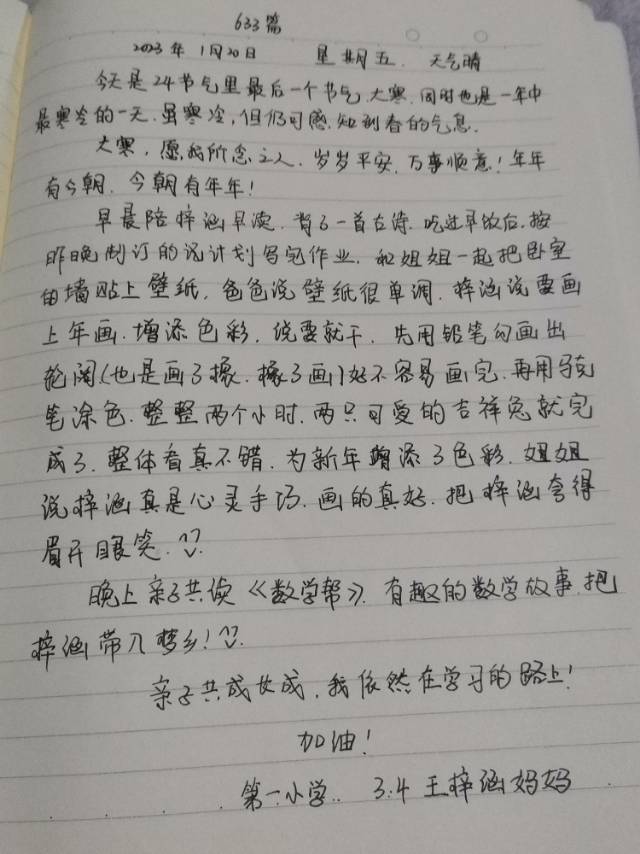 633篇
2023年1月20日 星期五. 天气晴
今天是24节气里最后一个节气,大寒.同时也是一年中
最寒冷的一天.虽寒冷,但仍可感知到春的气息.
大寒,愿我所念之人,岁岁平安,万事顺意!年年
有今朝.今朝有年年!
早晨陪梓涵早读.背了一首古诗.吃过早饭后.按
昨晚制订的计划写完作业.和姐姐一起把卧室
的墙贴上壁纸,爸爸说壁纸很单调.梓涵说要画
上年画.增添色彩.说要就干.先用铅笔勾画出
轮阔(也是画了擦.擦了画)好不容易画完.再用马克
笔涂色.整整两个小时.两只可爱的吉祥兔就完
成了.整体看真不错.为新年增添了色彩.姐姐
说梓涵真是心灵手巧.画的真好.把梓涵夸得
眉开眼笑.
晚上亲子共读《数学帮》.有趣的数学故事.把
梓涵带入梦乡!
亲子共成长成,我依然在学习的路上!
加油!
第一小学.. 3.4 王梓涵妈妈